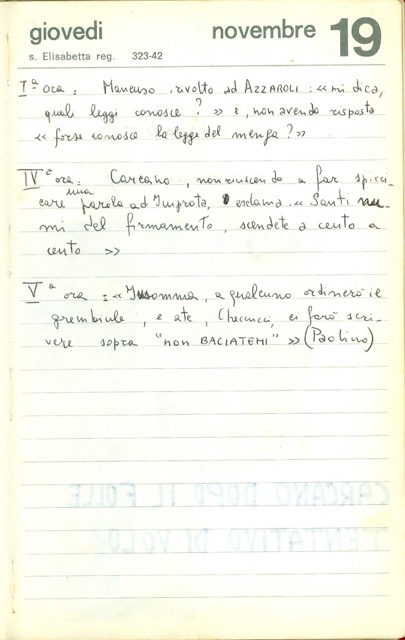 giovedi novembre 19
s. Elisabetta reg. 323-42
Iª ora: Mancuso rivolto ad AZZAROLI: «mi dica,
quali leggi conosce?» e, non avendo risposta
«forse conosce la legge del menga?»
IVª ora: Carcano, non riuscendo a far spicci-
care una parola ad Improta, esclama «Santi nu-
mi del firmamento, scendete a cento a
cento»
Vª ora: «Insomma, a qualcuno ordinerò il
grembiule, e a te, Checucci, ci farò scri-
vere sopra "non BACIATEMI"» (Paolino)
CARCANO DOPO IL FOLLE
TENTATIVO DI VOLO